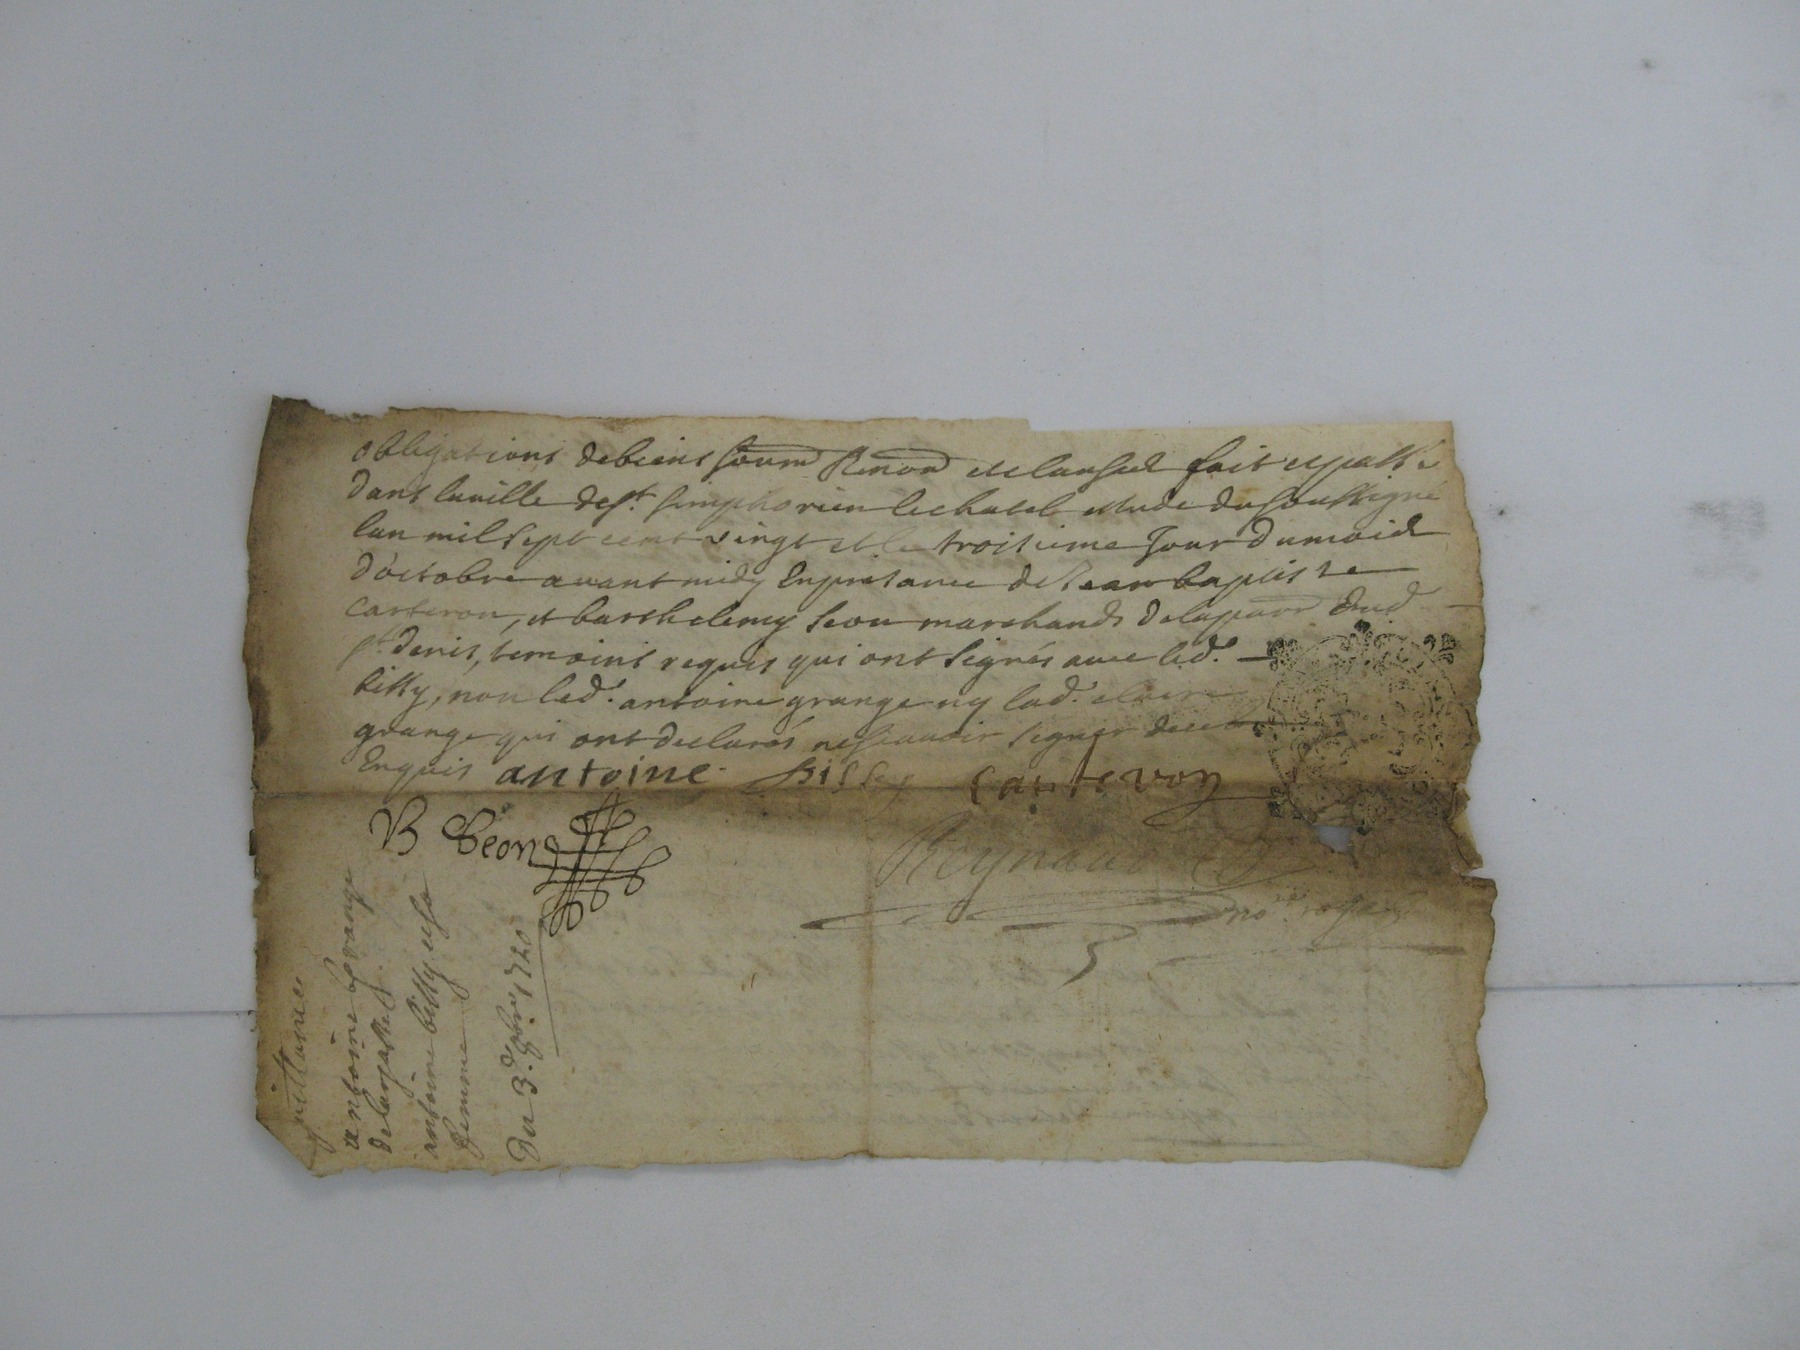 obligations de biens soum Renon et clauses fait et passé
dans la ville de st. simphorien le chatel etude du soussigné
lan mil sept cent vingt et le troisieme Jour du mois
d'octobre avant midy En presance de Jean baptiste
carteron, et barthelemy seon marchands de la parr dud
st. denis, temoins requis qui ont signés avec led.
bissy, non led. antoine grange ny lad. claire
grange qui ont declarés ne scavoir signer de ce
Enquis antoine bissy carteron
B Seon
Reynaud
nore royal
quittance
antoine Grange
de larjasse
antoine bissy et sa
femme
Du 3e. 8bre 1720